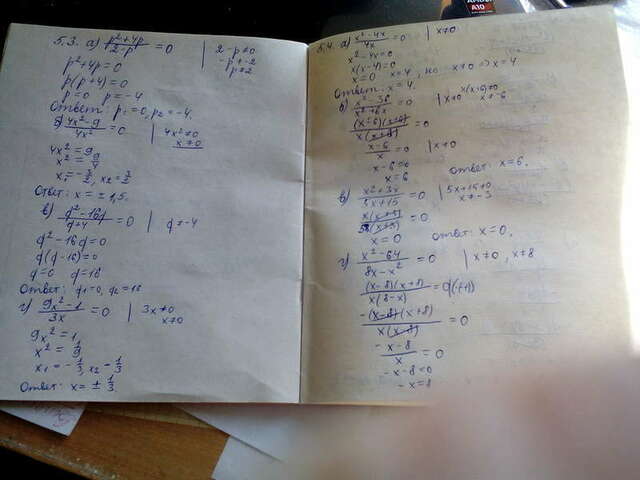 5.3. а) p²+4p / 2-p = 0 | 2-p≠0
-p≠-2
p≠2
p²+4p=0
p(p+4)=0
p=0 p=-4
Ответ: p₁=0, p₂=-4.
б) 4x²-9 / 4x² = 0 | 4x²≠0
x≠0
4x²=9
x²=9/4
x₁=-3/2, x₂=3/2
Ответ: x=±1,5.
в) q²-16q / q+4 = 0 | q≠-4
q²-16q=0
q(q-16)=0
q=0 q=16
Ответ: q₁=0, q₂=16
г) 9x²-1 / 3x = 0 | 3x≠0
x≠0
9x²=1
x²=1/9
x₁=-1/3, x₂=1/3
Ответ: x=±1/3.
5.4. а) x²-4x / 4x = 0 | x≠0
x²-4x=0
x(x-4)=0
x=0 x=4, но x≠0 => x=4
Ответ: x=4.
x²-36 / x²+6x = 0 | x≠0 x≠-6
(x-6)(x+6) / x(x+6) = 0
x-6 / x = 0 | x≠0
x-6=0
x=6 Ответ: x=6.
в) x²+3x / 5x+15 = 0 | 5x+15≠0
x≠-3
x(x+3) / 5(x+3) = 0
x=0 Ответ: x=0.
г) x²-64 / 8x-x² = 0 | x≠0, x≠8
(x-8)(x+8) / x(8-x) = 0 |(-1)
-(x-8)(x+8) / x(x-8) = 0
-x-8 / x = 0
-x-8=0
-x=8